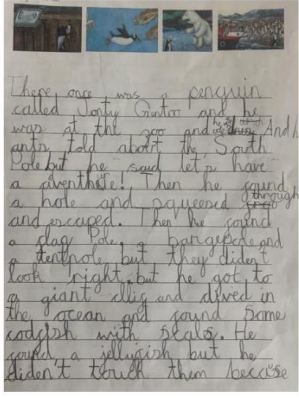 There once was a penguin
called Jonty Gentoo and he
was at the zoo and And his
ants told about the South
Pole but he said let's have
a aventhete! Then he found
a hole and squeesed through
and escaped. Then he found
a flag Pole, a bangepole and
a tentpole but they dident
look right. but he got to
a giant and dived in
the ocean and found some
codfish with seals. He
found a jellyfish but he
diden't touch them because